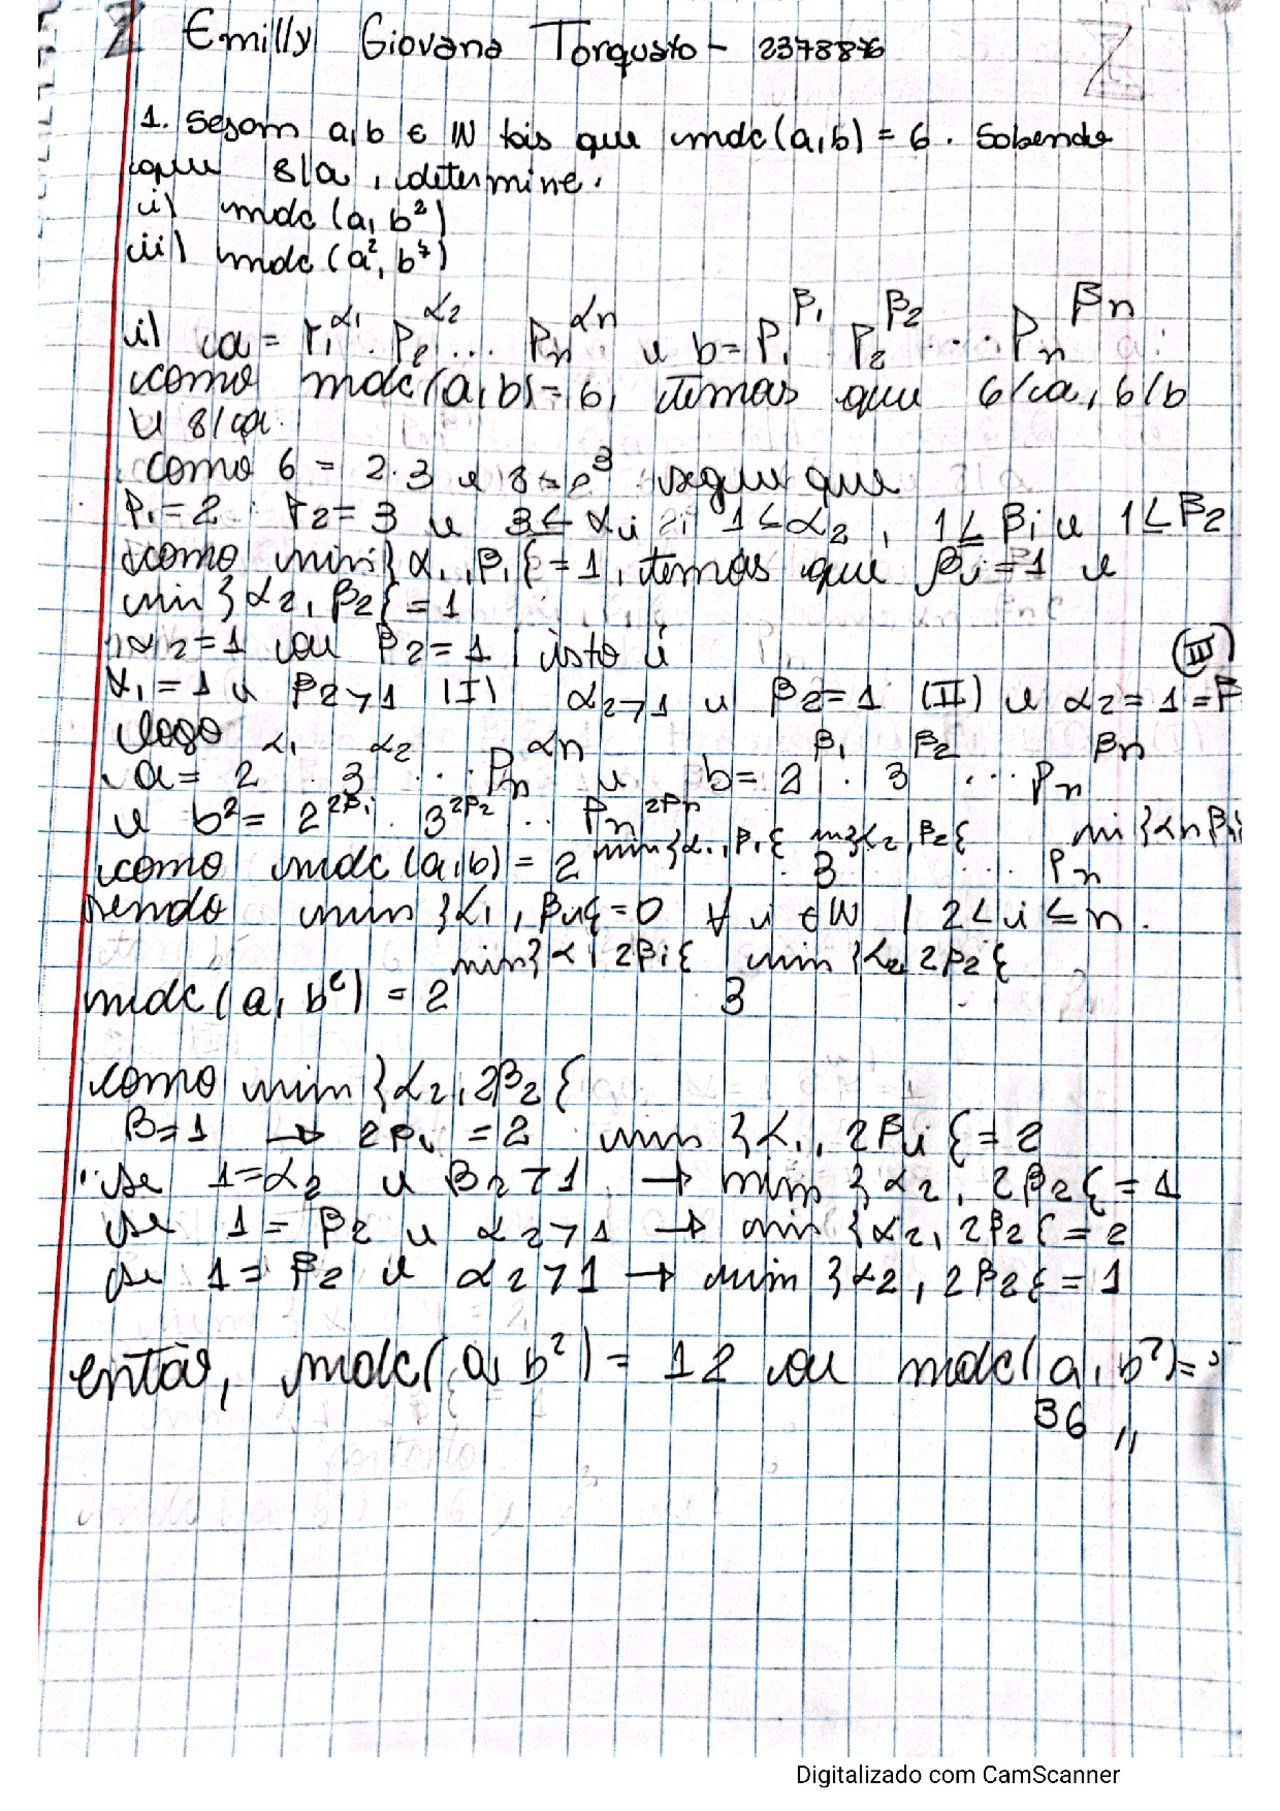 Emilly Giovana Torquato - 2378876
1. Sejam a,b ∈ IN tais que mdc(a,b) = 6. Sabendo
que 8|a, determine.
i) mdc (a, b²)
ii) mdc (a², b⁷)
i) a = P₁^α₁ . P₂^α₂ ... Pₙ^αn e b = P₁^β₁ P₂^β₂ ... Pₙ^βn
como mdc(a,b) = 6, temos que 6|a, 6|b
e 8|a.
como 6 = 2.3 e 8 = 2³ segue que
P₁ = 2 P₂ = 3 e 3 ≤ αi 1 ≤ α₂, 1 ≤ βi e 1 ≤ β₂
como min}α₁, β₁{ = 1, temos que βi = 1 e
min }α₂, β₂{ = 1
α₂ = 1 ou β₂ = 1, isto é
α₁ = 1 e β₂ > 1 (I) α₂ > 1 e β₂ = 1 (II) e α₂ = 1 = β (III)
logo
a = 2^α₁ . 3^α₂ ... Pₙ^αn e b = 2^β₁ . 3^β₂ ... Pₙ^βn
e b² = 2^2βi . 3^2β₂ ... Pₙ^2βn
como mdc (a,b) = 2^min}α₁, β₁{ . 3^min}α₂, β₂{ ... Pₙ^mi}αn βn{
sendo min }α₁, βn{ = 0 ∀ i ∈ IN | 2 < i ≤ n.
mdc (a, b²) = 2^min}α₁ 2βi{ 3^min}α₂ 2β₂{
como min }α₂, 2β₂{
β = 1 → 2βi = 2 min }α₁, 2βi{ = 2
se 1 = α₂ e β₂ > 1 → min }α₂, 2β₂{ = 1
se 1 = β₂ e α₂ > 1 → min }α₂, 2β₂{ = 2
se 1 = β₂ e α₂ > 1 → min }α₂, 2β₂{ = 1
então, mdc(a, b²) = 12 ou mdc(a, b²) =
36 //
Digitalizado com CamScanner